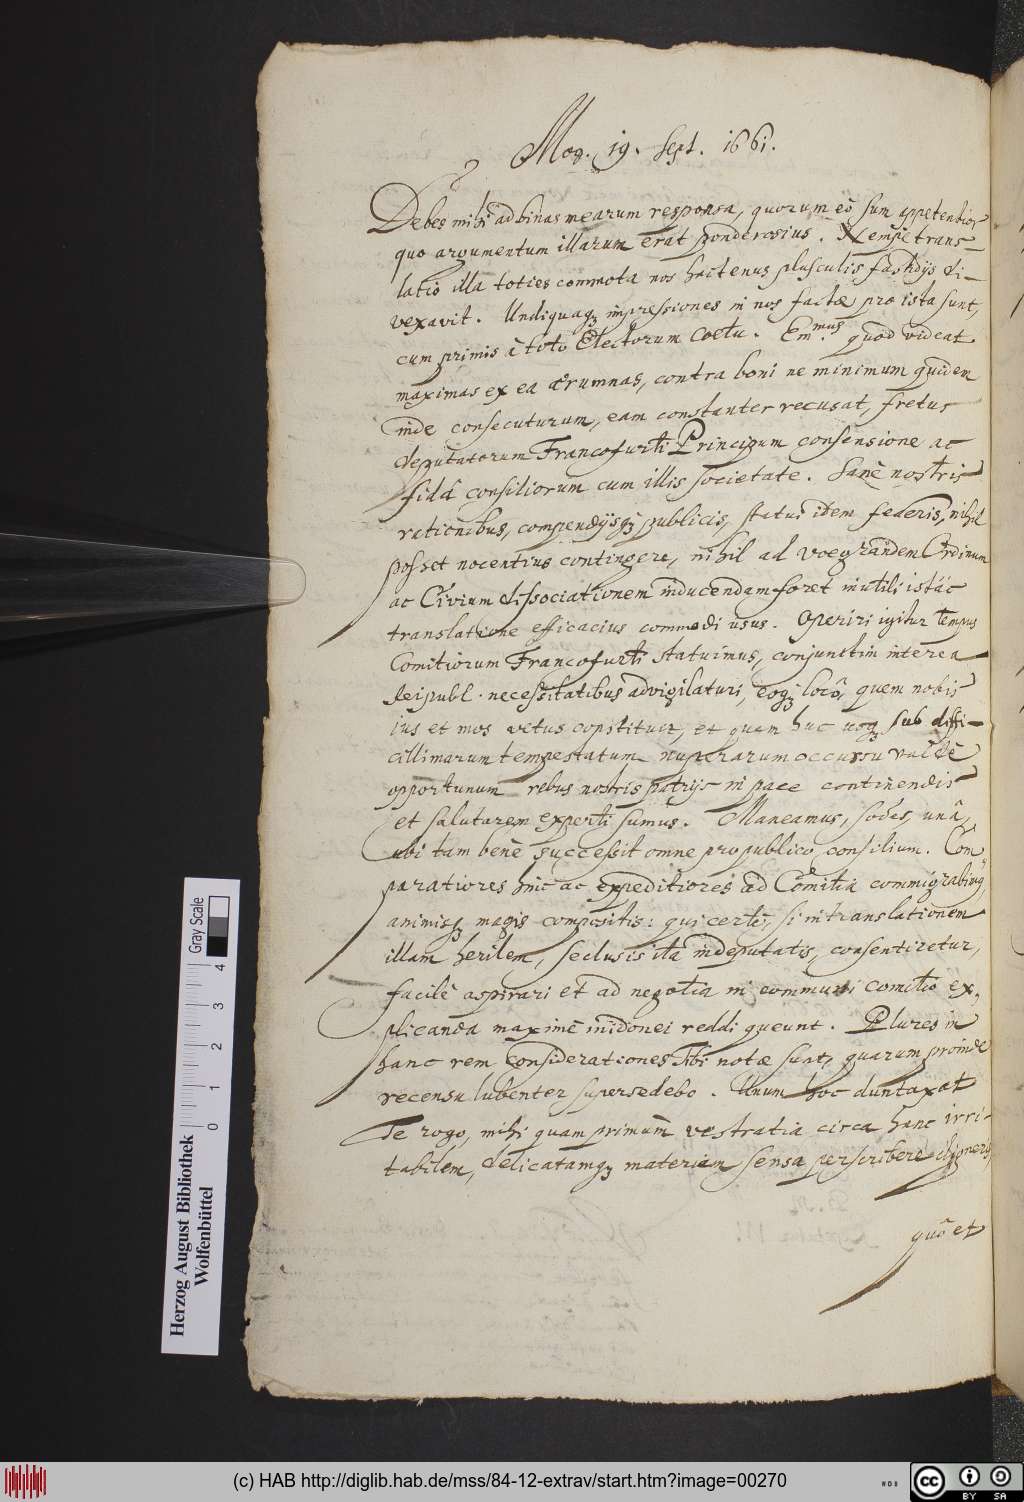 Mog. 19. Sept. 1661.
Debes mihi ad binas mearum responsa, quorum eò sum appetentior
quo argumentum illarum erat ponderosius. Nempe trans-
latio illa toties commota nos hactenus plusculis fastidijs di-
vexavit. Undiquaq; impressiones in nos factæ pro ista sunt,
cum primis è toto Electorum Coetu. Em.mus quod videat
maximas ex ea ærumnas, contra boni ne minimum quidem
inde consecuturum, eam constanter recusat, fretus
deputatorum Francofurti Principum consensione ac
fida consiliorum cum illis societate. Sanè nostris
rationibus, compendijsq; publicis, statui idem federis, nihil
posset nocentius contingere, nihil ad Ordinum
ac Civium dissociationem inducendam foret inutili istâc
translatione efficacius commodi usus. Operiri igitur tempus
Comitiorum Francofurti statuimus, conjunctim interea
Reipubl. necessitatibus advigilaturi, eoq; locô, quem nobis
ius et mos vetus constituit, et quem huc usq; sub diffi-
cillimarum tempestatum nuperarum occursu valdè
opportunum rebus nostris patrijs in pace continendis
et salutarem experti sumus. Maneamus, una,
ubi tam benè successit omne pro publico consilium. Com-
paratiores hinc ac expeditiores ad Comitia commigrabimus
animisq; magis compositis: qui certè, si in translationem
illam herilem, seclusis ita indeputatis, consentiretur,
facilè aspirari et ad negotia in communi comitio ex-
plicanda maximè inidonei reddi queunt. Plures in
hanc rem considerationes Tibi notæ sunt, quarum proinde
recensu lubenter supersedebo. Unum hoc duntaxat
Te rogo, mihi quam primùm vestratia circa hanc irri-
tabilem, delicatamq; materiam sensa perscribere digneris,
quô et
Herzog August Bibliothek
Wolfenbüttel
0 1 2 3 4
Gray Scale
(c) HAB http://diglib.hab.de/mss/84-12-extrav/start.htm?image=00270
cc BY SA